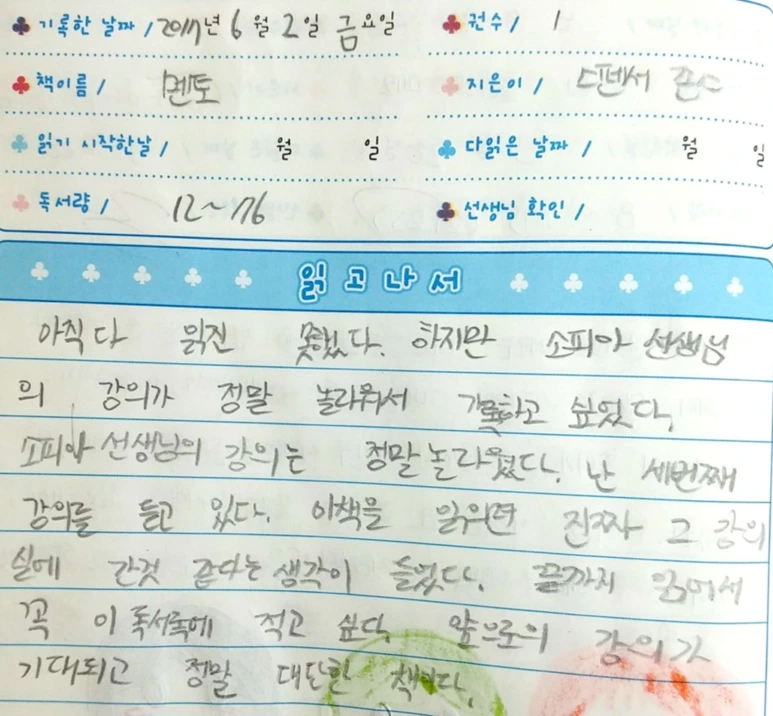 기록한 날짜 / 2017년 6월 2일 금요일 권수 / 1
책이름 / 멘토 지은이 / 스펜서 존슨
읽기 시작한날 / 월 일 다읽은 날짜 / 월 일
독서량 / 12~76 선생님 확인 /
읽고나서
아직 다 읽진 못했다. 하지만 소피아 선생님
의 강의가 정말 놀라워서 기록하고 싶었다.
소피아 선생님의 강의는 정말 놀라웠다. 난 세번째
강의를 듣고 있다. 이책을 읽으면 진짜 그 강의
실에 간것 같다는 생각이 들었다. 끝까지 읽어서
꼭 이 독서록에 적고 싶다. 앞으로의 강의가
기대되고 정말 대단한 책이다.